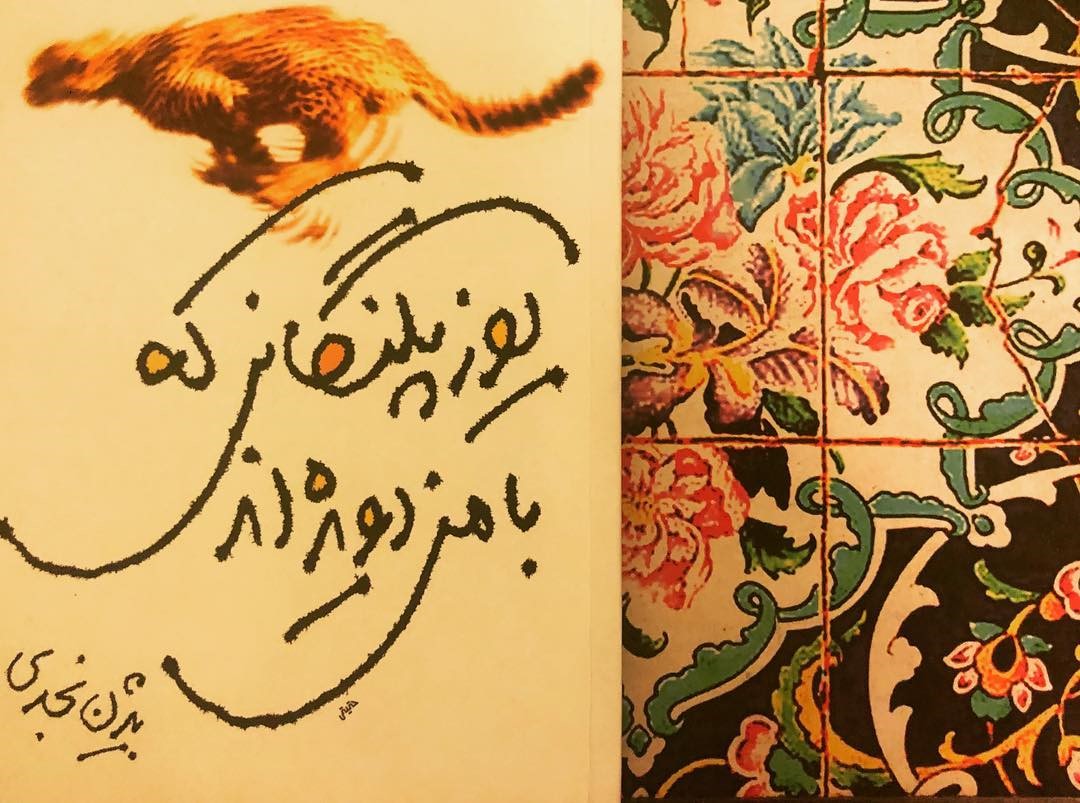 یوزپلنگانی که
با من دویده‌اند
بیژن نجدی